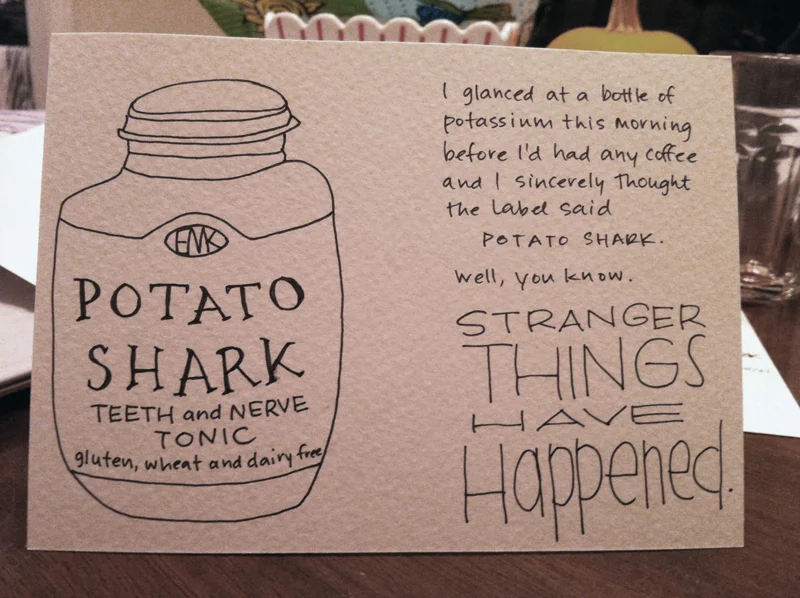 EMK
POTATO
SHARK
TEETH and NERVE
TONIC
gluten, wheat and dairy free
I glanced at a bottle of
potassium this morning
before I'd had any coffee
and I sincerely thought
the label said
POTATO SHARK.
Well, you know.
STRANGER
THINGS
HAVE
Happened.